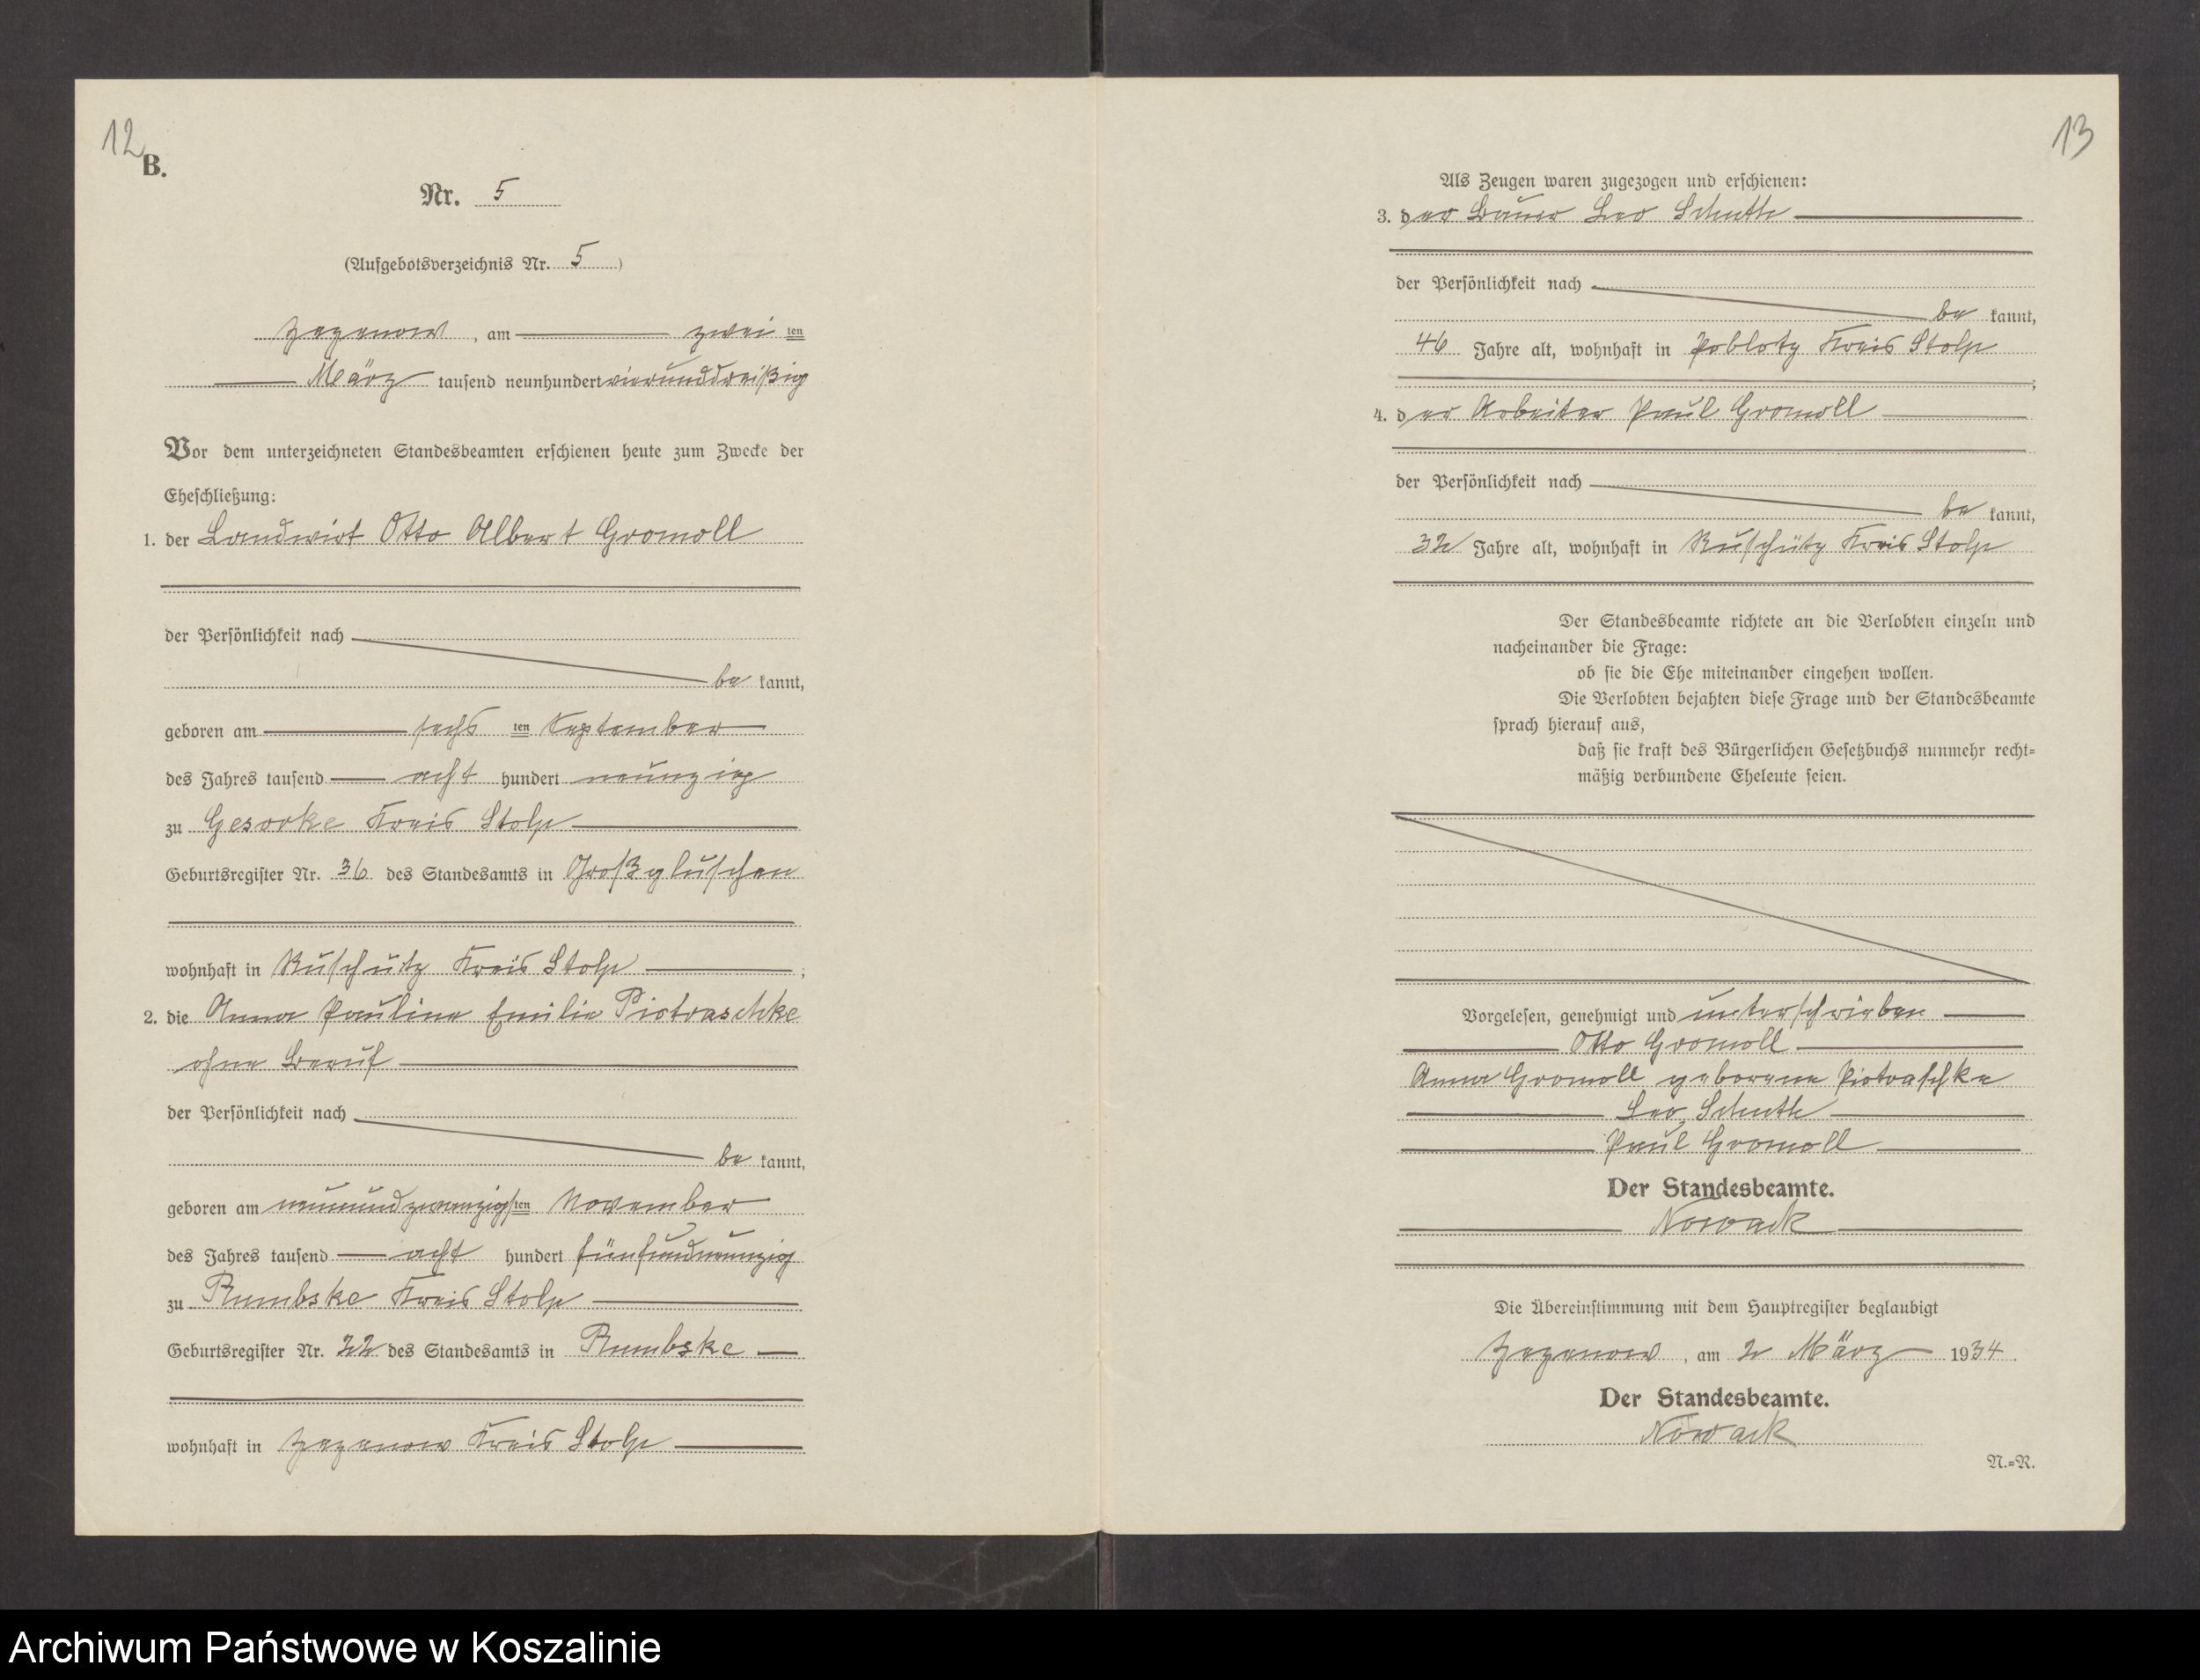 12
B.
Nr. 5
(Aufgebotsverzeichnis Nr. 5)
Zezenow, am zwei ten
März tausend neunhundert vierunddreißig
Vor dem unterzeichneten Standesbeamten erschienen heute zum Zwecke der
Eheschließung:
1. der Landwirt Otto Albert Gromoll
der Persönlichkeit nach
be kannt,
geboren am sechs ten September
des Jahres tausend acht hundert neunzig
zu Gesorke Kreis Stolp
Geburtsregister Nr. 36 des Standesamts in Großgluschen
wohnhaft in Ruschütz Kreis Stolp ;
2. die Anna Pauline Emilie Pietraschke
ohne Beruf
der Persönlichkeit nach
be kannt,
geboren am neunundzwanzigsten November
des Jahres tausend acht hundert fünfundneunzig
zu Rumbske Kreis Stolp
Geburtsregister Nr. 22 des Standesamts in Rumbske
wohnhaft in Zezenow Kreis Stolp
13
Als Zeugen waren zugezogen und erschienen:
3. der Bauer Leo Schuth
der Persönlichkeit nach
be kannt,
46 Jahre alt, wohnhaft in Poblotz Kreis Stolp
;
4. der Arbeiter Paul Gromoll
der Persönlichkeit nach
be kannt,
32 Jahre alt, wohnhaft in Ruschütz Kreis Stolp
Der Standesbeamte richtete an die Verlobten einzeln und
nacheinander die Frage:
ob sie die Ehe miteinander eingehen wollen.
Die Verlobten bejahten diese Frage und der Standesbeamte
sprach hierauf aus,
daß sie kraft des Bürgerlichen Gesetzbuchs nunmehr recht-
mäßig verbundene Eheleute seien.
Vorgelesen, genehmigt und unterschrieben
Otto Gromoll
Anna Gromoll geborene Pietraschke
Leo Schuth
Paul Gromoll
Der Standesbeamte.
Nowack
Die Übereinstimmung mit dem Hauptregister beglaubigt
Zezenow, am 2 März 1934.
Der Standesbeamte.
Nowack
N.-R.
Archiwum Państwowe w Koszalinie